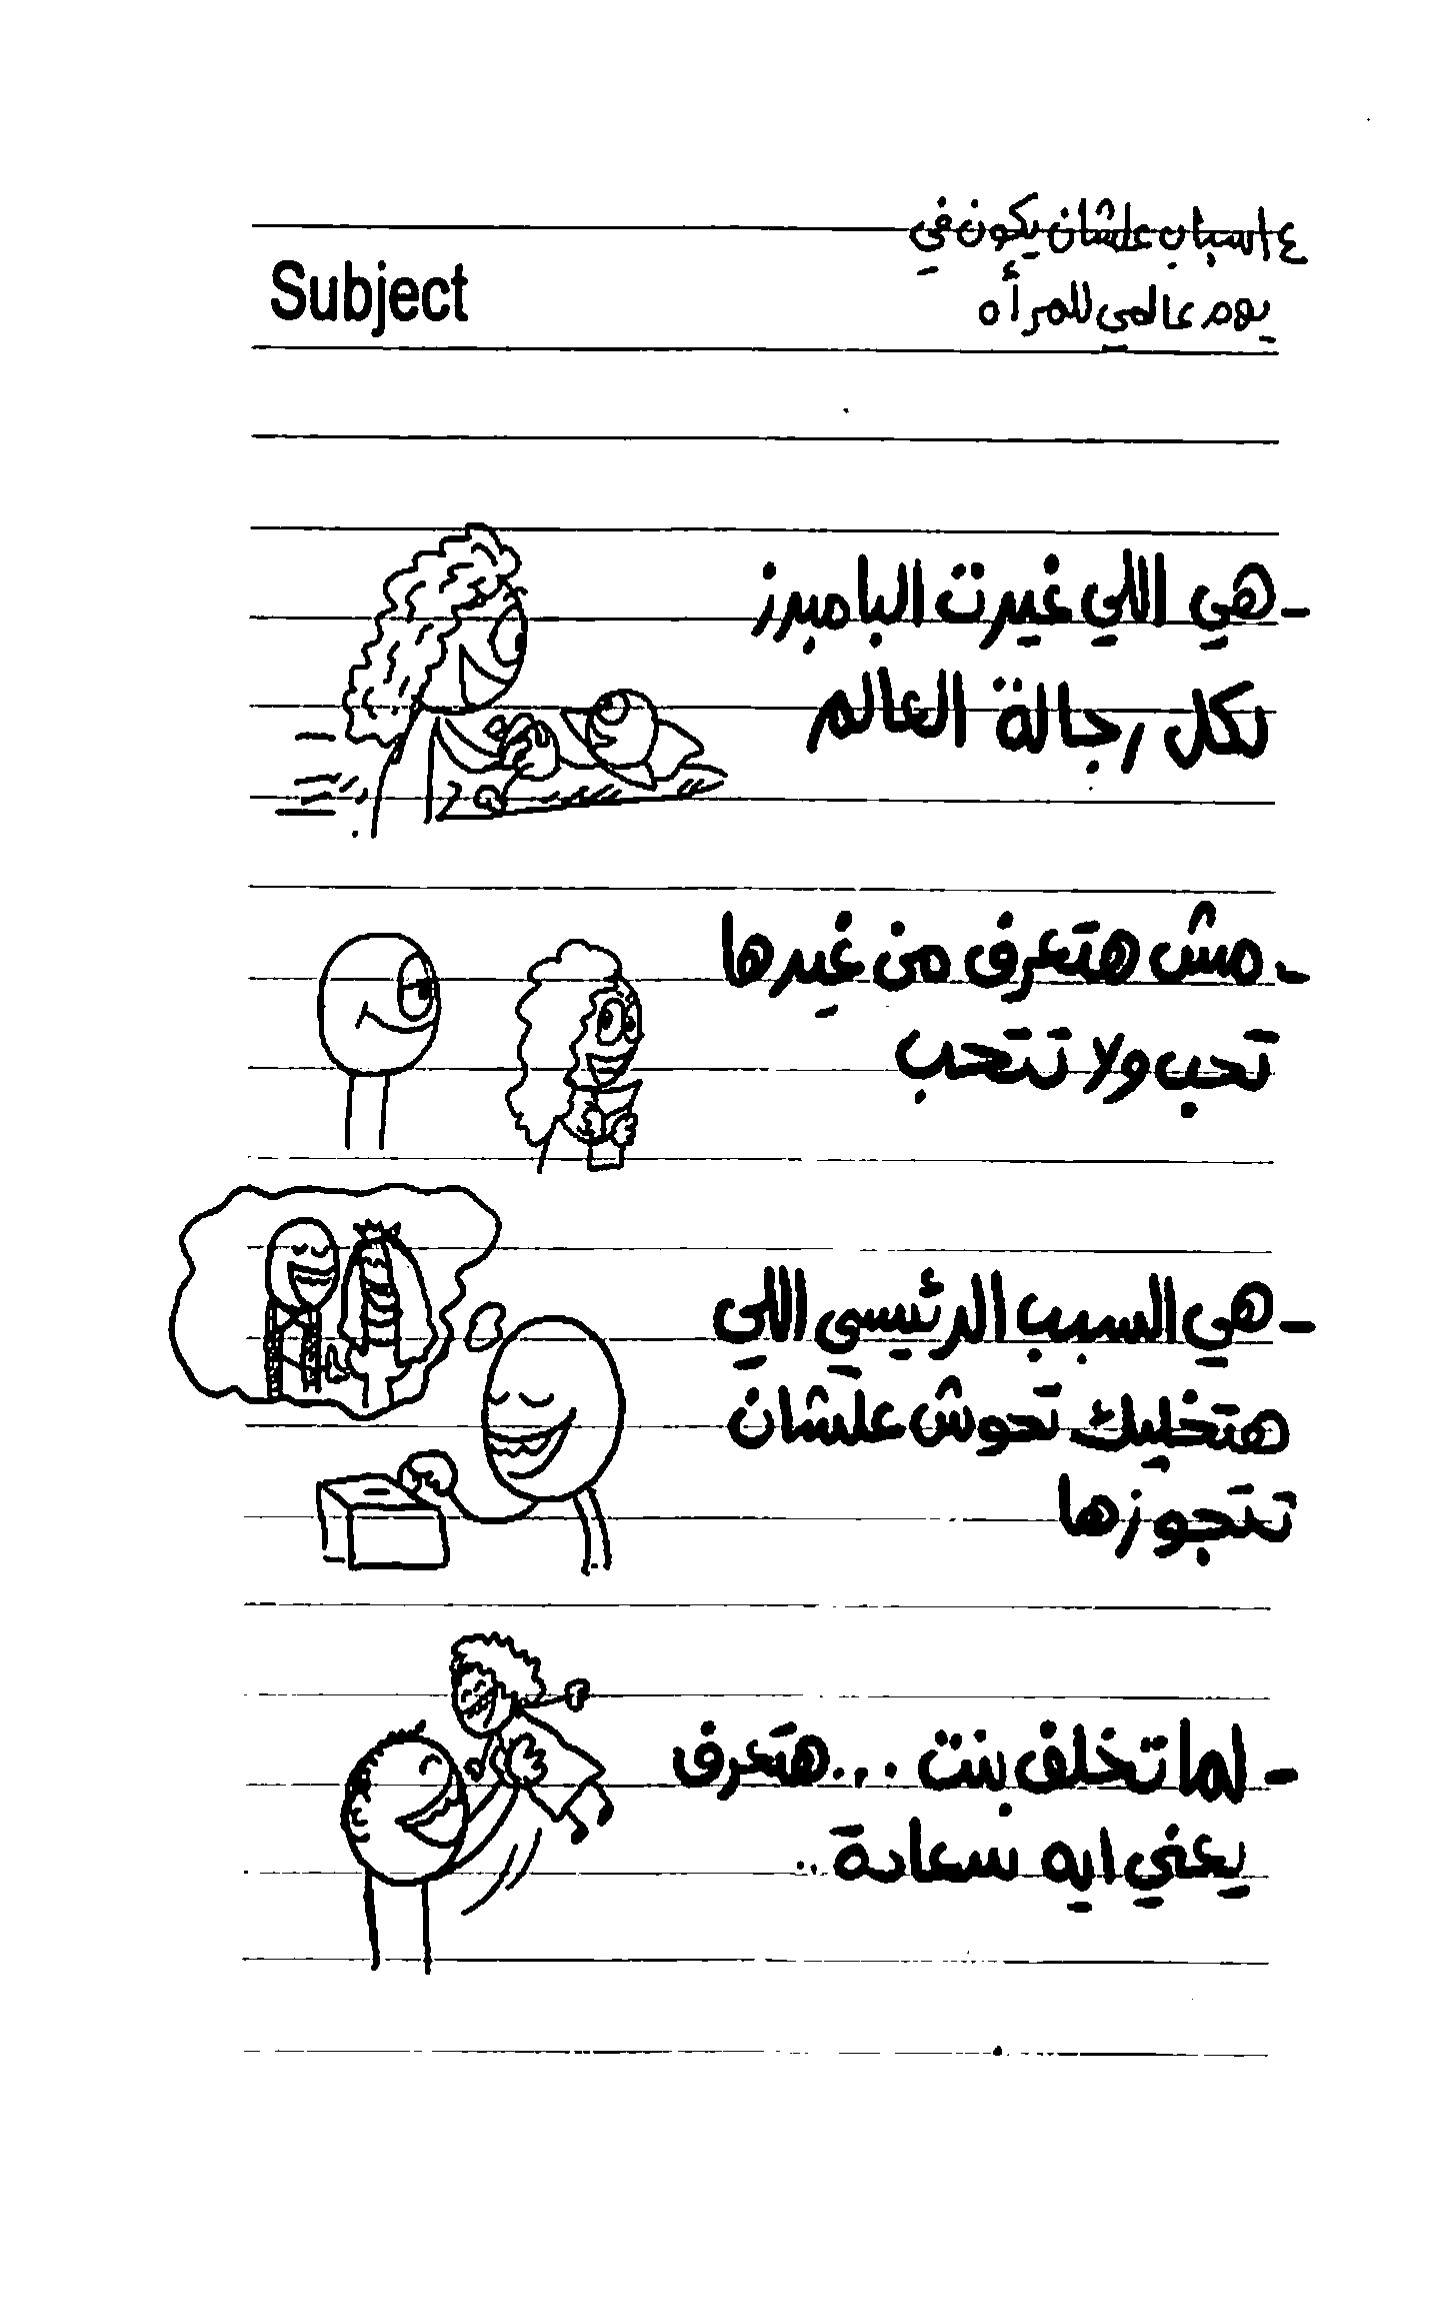 ٤ اسباب علشان يكون في
يوم عالمي للمرأه
Subject
- هي اللي غيرت البامبرز
لكل رجالة العالم
- مش هتعرف من غيرها
تحب ولا تتحب
- هي السبب الرئيسي اللي
هتخليك تحوش علشان
تتجوزها
- لما تخلف بنت ... هتعرف
يعني ايه سعادة ..